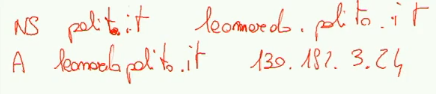 NS polito.it leonardo.polito.it
A leonardo.polito.it 130.192.3.24